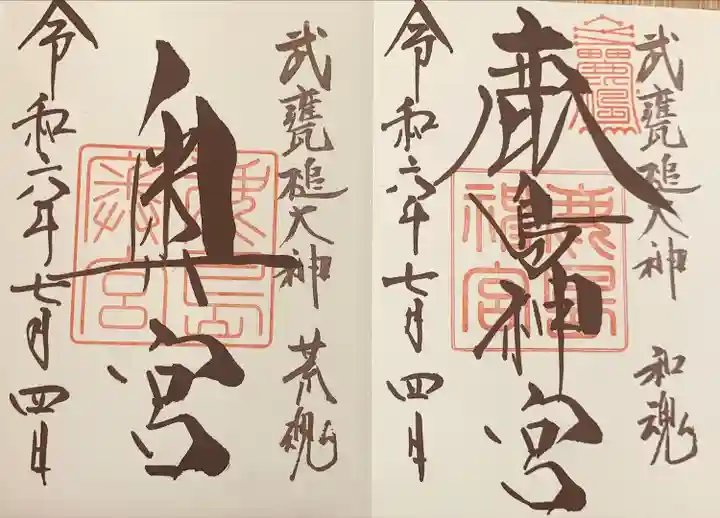 武甕槌大神 和魂
鹿島神宮
令和六年七月四日
武甕槌大神 荒魂
奥宮
令和六年七月四日
鹿島
神宮